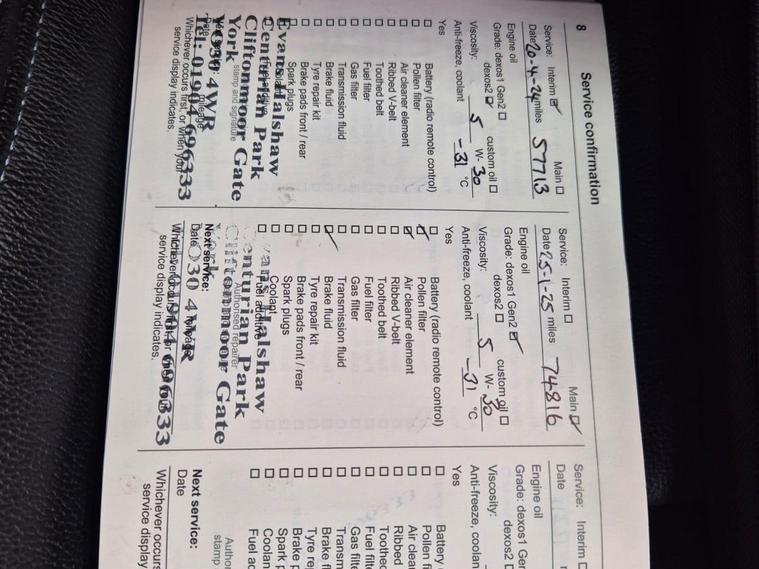 8 Service confirmation
Service: Interim ☑ Main ☐
Date 20-4-24 miles 57713
Engine oil
Grade: dexos1 Gen2 ☐
dexos2 ☑ custom oil ☐
Viscosity: 5 W- 30
Anti-freeze, coolant -31 °C
Yes
☐ Battery (radio remote control)
☐ Pollen filter
☐ Air cleaner element
☐ Ribbed V-belt
☐ Toothed belt
☐ Fuel filter
☐ Gas filter
☐ Transmission fluid
☐ Brake fluid
☐ Tyre repair kit
☐ Brake pads front / rear
☐ Spark plugs
Evans Halshaw
Centurian Park
Cliftonmoor Gate
York
stamp and signature
YO30 4WR
Tel: 01904 696333
Whichever occurs first, or when your
service display indicates.
Service: Interim ☐ Main ☑
Date 25-1-25 miles 74816
Engine oil
Grade: dexos1 Gen2 ☑
dexos2 ☐ custom oil ☐
Viscosity: 5 W- 30
Anti-freeze, coolant -31 °C
Yes
☐ Battery (radio remote control)
☑ Pollen filter
☑ Air cleaner element
☐ Ribbed V-belt
☐ Toothed belt
☐ Fuel filter
☐ Gas filter
☐ Transmission fluid
☑ Brake fluid
☐ Tyre repair kit
☐ Brake pads front / rear
☐ Spark plugs
☐ Coolant
Halshaw
Centurian Park
Authorised repairer
Cliftonmoor Gate
Next service:
Date
O30 4WR
696333
service display indicates.
Service: Interim ☐
Date
Engine oil
Grade: dexos1 Gen
dexos2 ☐
Viscosity:
Anti-freeze, coolan
Yes
☐ Battery
☐ Pollen fi
☐ Air clea
☐ Ribbed
☐ Toothed
☐ Fuel filt
☐ Gas filte
☐ Transm
☐ Brake fl
☐ Tyre re
☐ Brake p
☐ Spark p
☐ Coolan
☐ Fuel ad
Author
stamp
Next service:
Date
Whichever occurs
service display